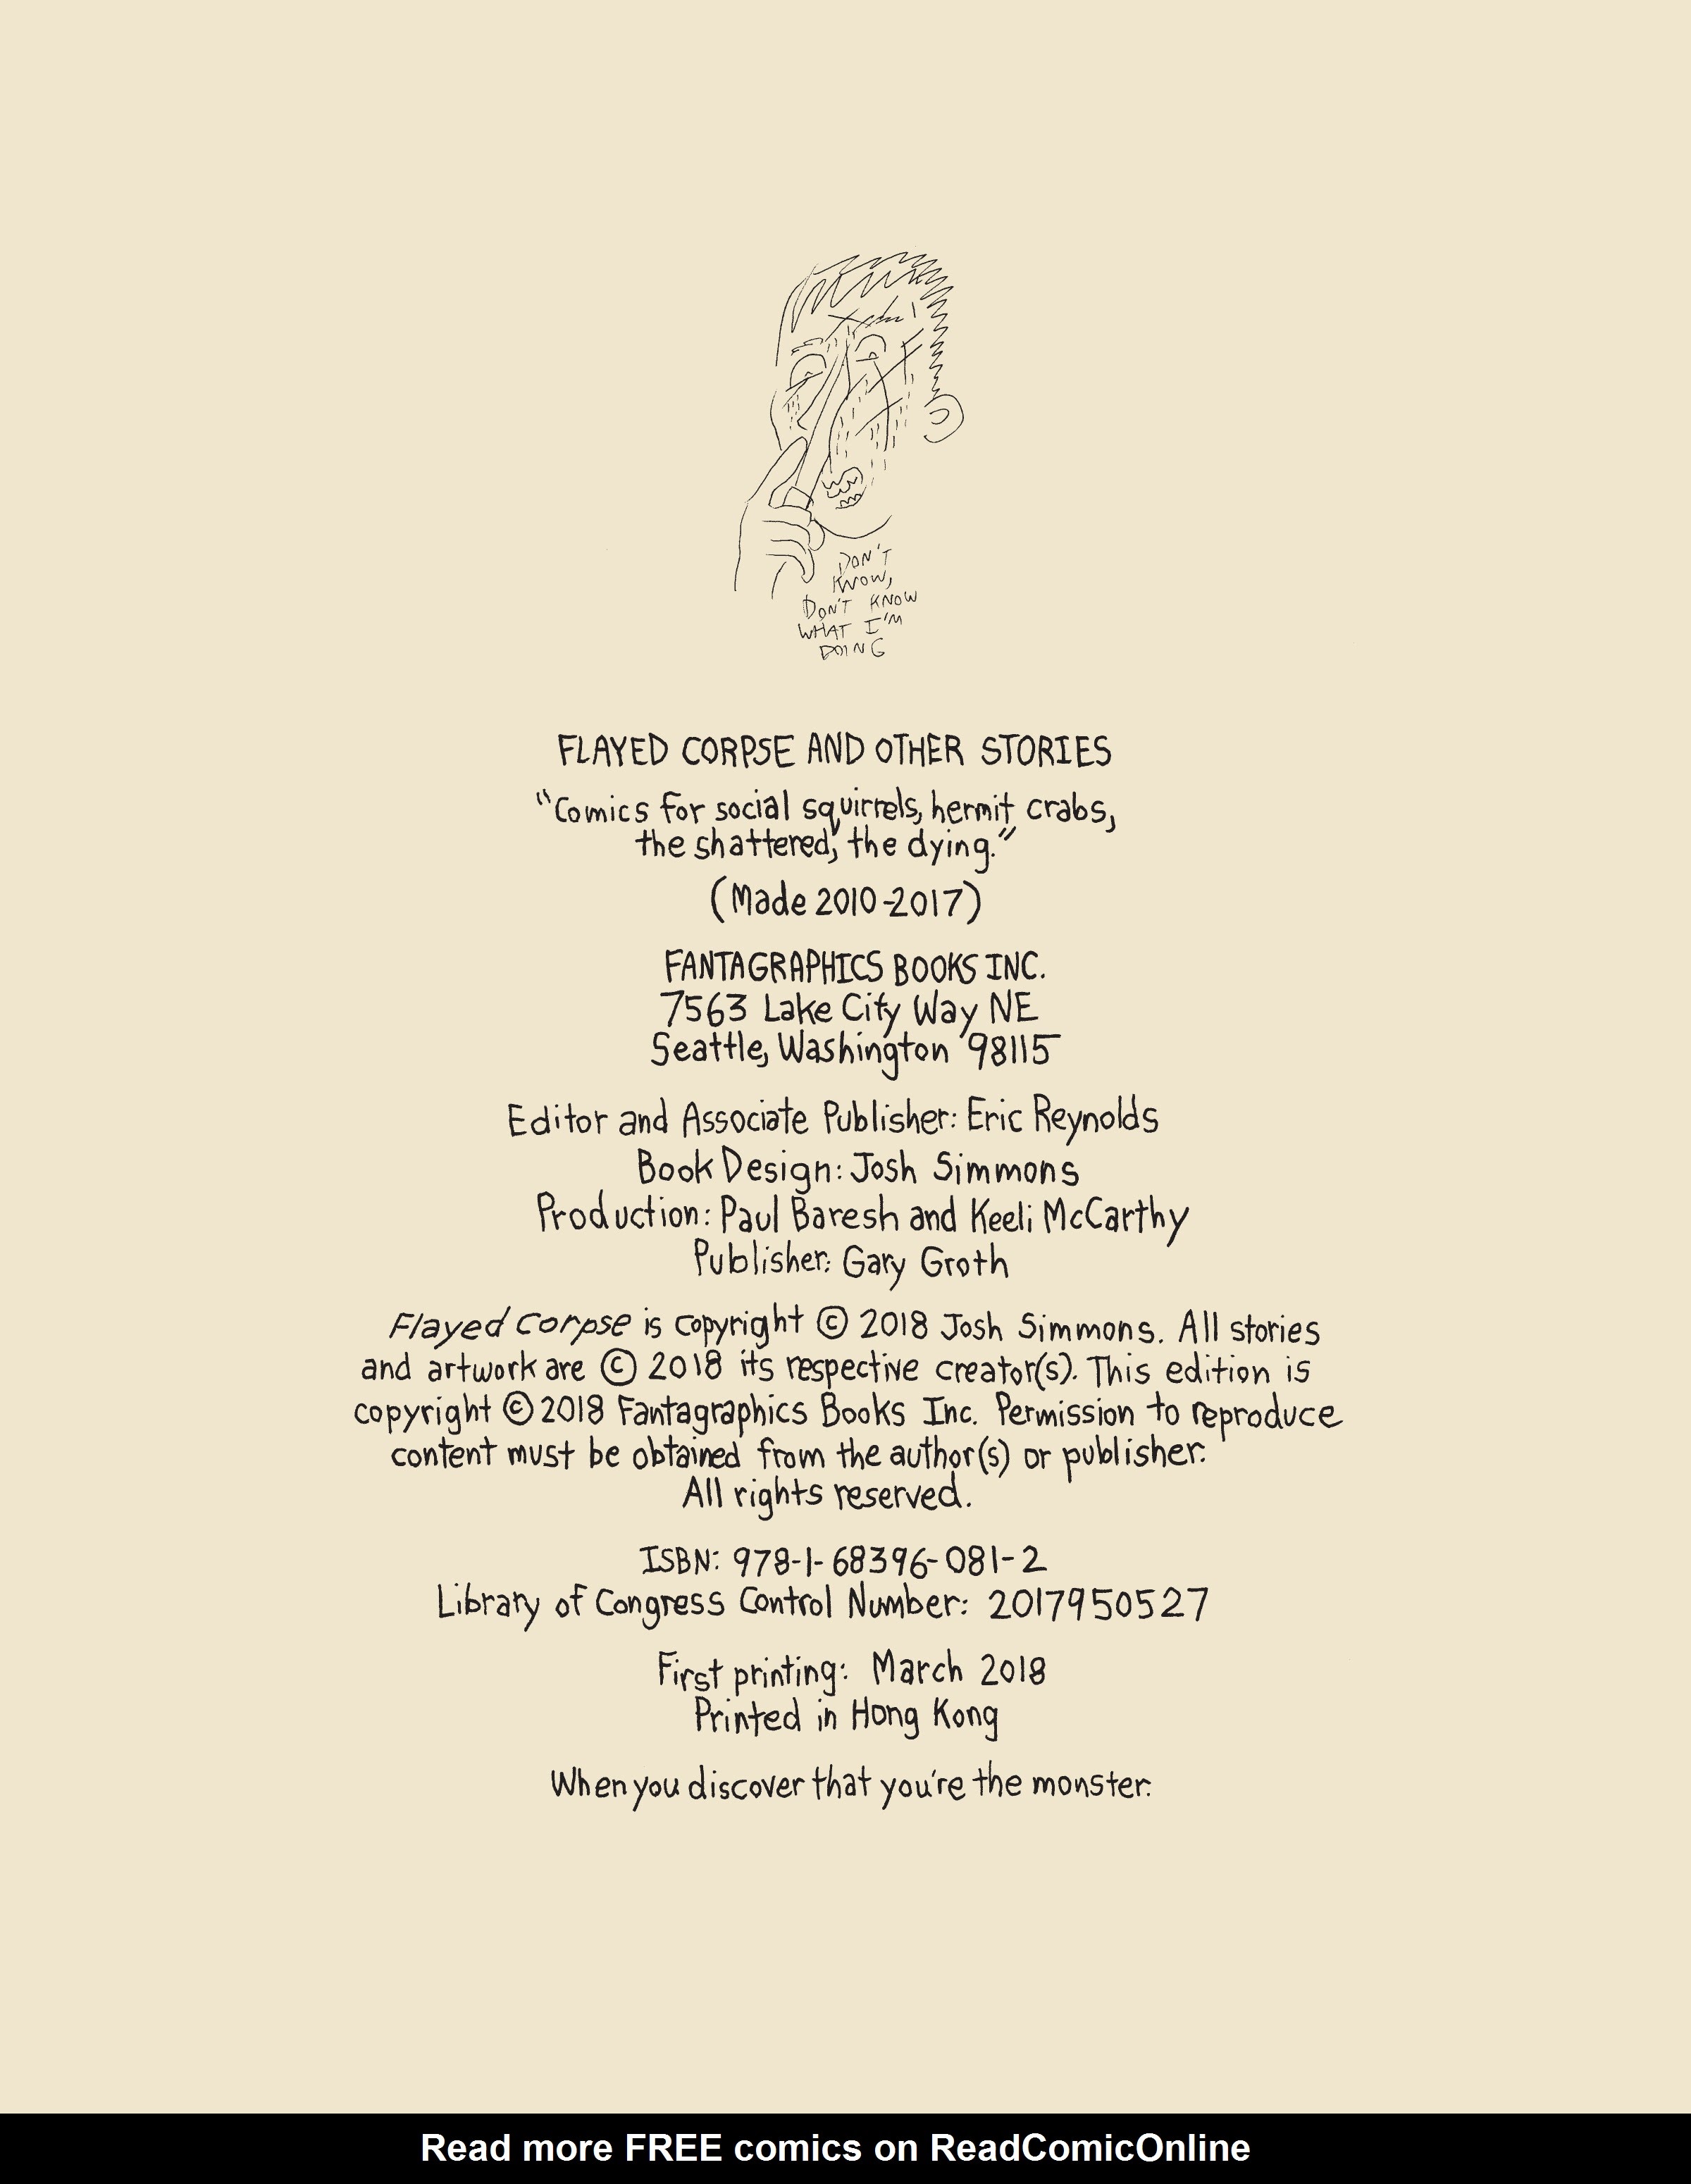 DON'T
KNOW,
DON'T KNOW
WHAT I'M
DOING
FLAYED CORPSE AND OTHER STORIES
"Comics for social squirrels, hermit crabs,
the shattered, the dying."
(Made 2010-2017)
FANTAGRAPHICS BOOKS INC.
7563 Lake City Way NE
Seattle, Washington 98115
Editor and Associate Publisher: Eric Reynolds
Book Design: Josh Simmons
Production: Paul Baresh and Keeli McCarthy
Publisher: Gary Groth
Flayed Corpse is copyright © 2018 Josh Simmons. All stories
and artwork are © 2018 its respective creator(s). This edition is
copyright © 2018 Fantagraphics Books Inc. Permission to reproduce
content must be obtained from the author(s) or publisher.
All rights reserved.
ISBN: 978-1-68396-081-2
Library of Congress Control Number: 2017950527
First printing: March 2018
Printed in Hong Kong
When you discover that you're the monster.
Read more FREE comics on ReadComicOnline